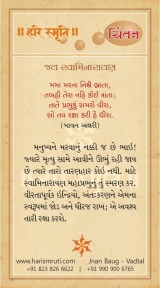 ॥ हरि स्मृति ॥
चिंतन
જય સ્વામિનારાયણ
મમા મરના નિશ્ચે ભ્રાતા,
તબહી તેરા નહિ કોઈ ત્રાતા;
તાતે પ્રભુકું સમરો વીરા,
સો તવ રક્ષા કરી હે ધીરા.
(બાવન અક્ષરી)
મનુષ્યને મરવાનું નક્કી જ છે ભાઇ!
જ્યારે મૃત્યુ સામે આવીને ઊભું રહી જાય
છે ત્યારે તારો તારણહાર કોઈ નથી. માટે
સ્વામિનારાયણ મહાપ્રભુનું તું સ્મરણ કર.
વીરતાપૂર્વક ઈન્દ્રિયો, અંતઃકરણને એમના
સ્વરૂપમાં જોડ અને ધીરજ રાખ; એ અવશ્ય
તારી રક્ષા કરશે.
www.harismruti.com
Jnan Baug - Vadtal
+91 823 826 6622
+91 990 900 6765